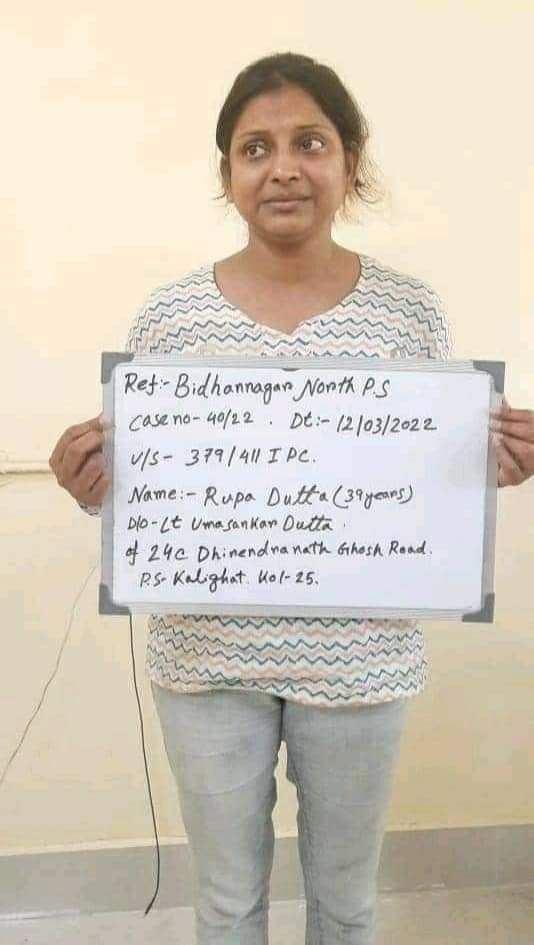 Ref:- Bidhannagar North P.S
Case no- 40/22 . Dt:- 12/03/2022
U/S- 379/411 IPC.
Name:- Rupa Dutta (39years)
D/O- Lt Umasankar Dutta.
of 24C Dhirendranath Ghosh Road.
P.S- Kalighat. Kol-25.